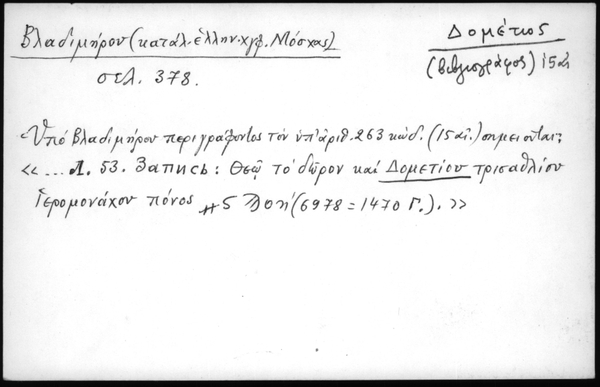 Βλαδιμήρου (κατάλ. ἑλλην. χγφ. Μόσχας)
Δομέτιος
σελ. 378.
(βιβλιογράφος) 15 αἰ
Ὑπό Βλαδιμήρου περιγράφοντος τόν ὑπ' ἀριθ. 263 κώδ. (15 αἰ.) σημειοῦται:
«... Л. 53. Запись: Θεῷ τό δῶρον καί Δομετίου τρισαθλίου
ἱερομονάχου πόνος ͵ϛ ϡοη (6978 = 1470 Г.).»